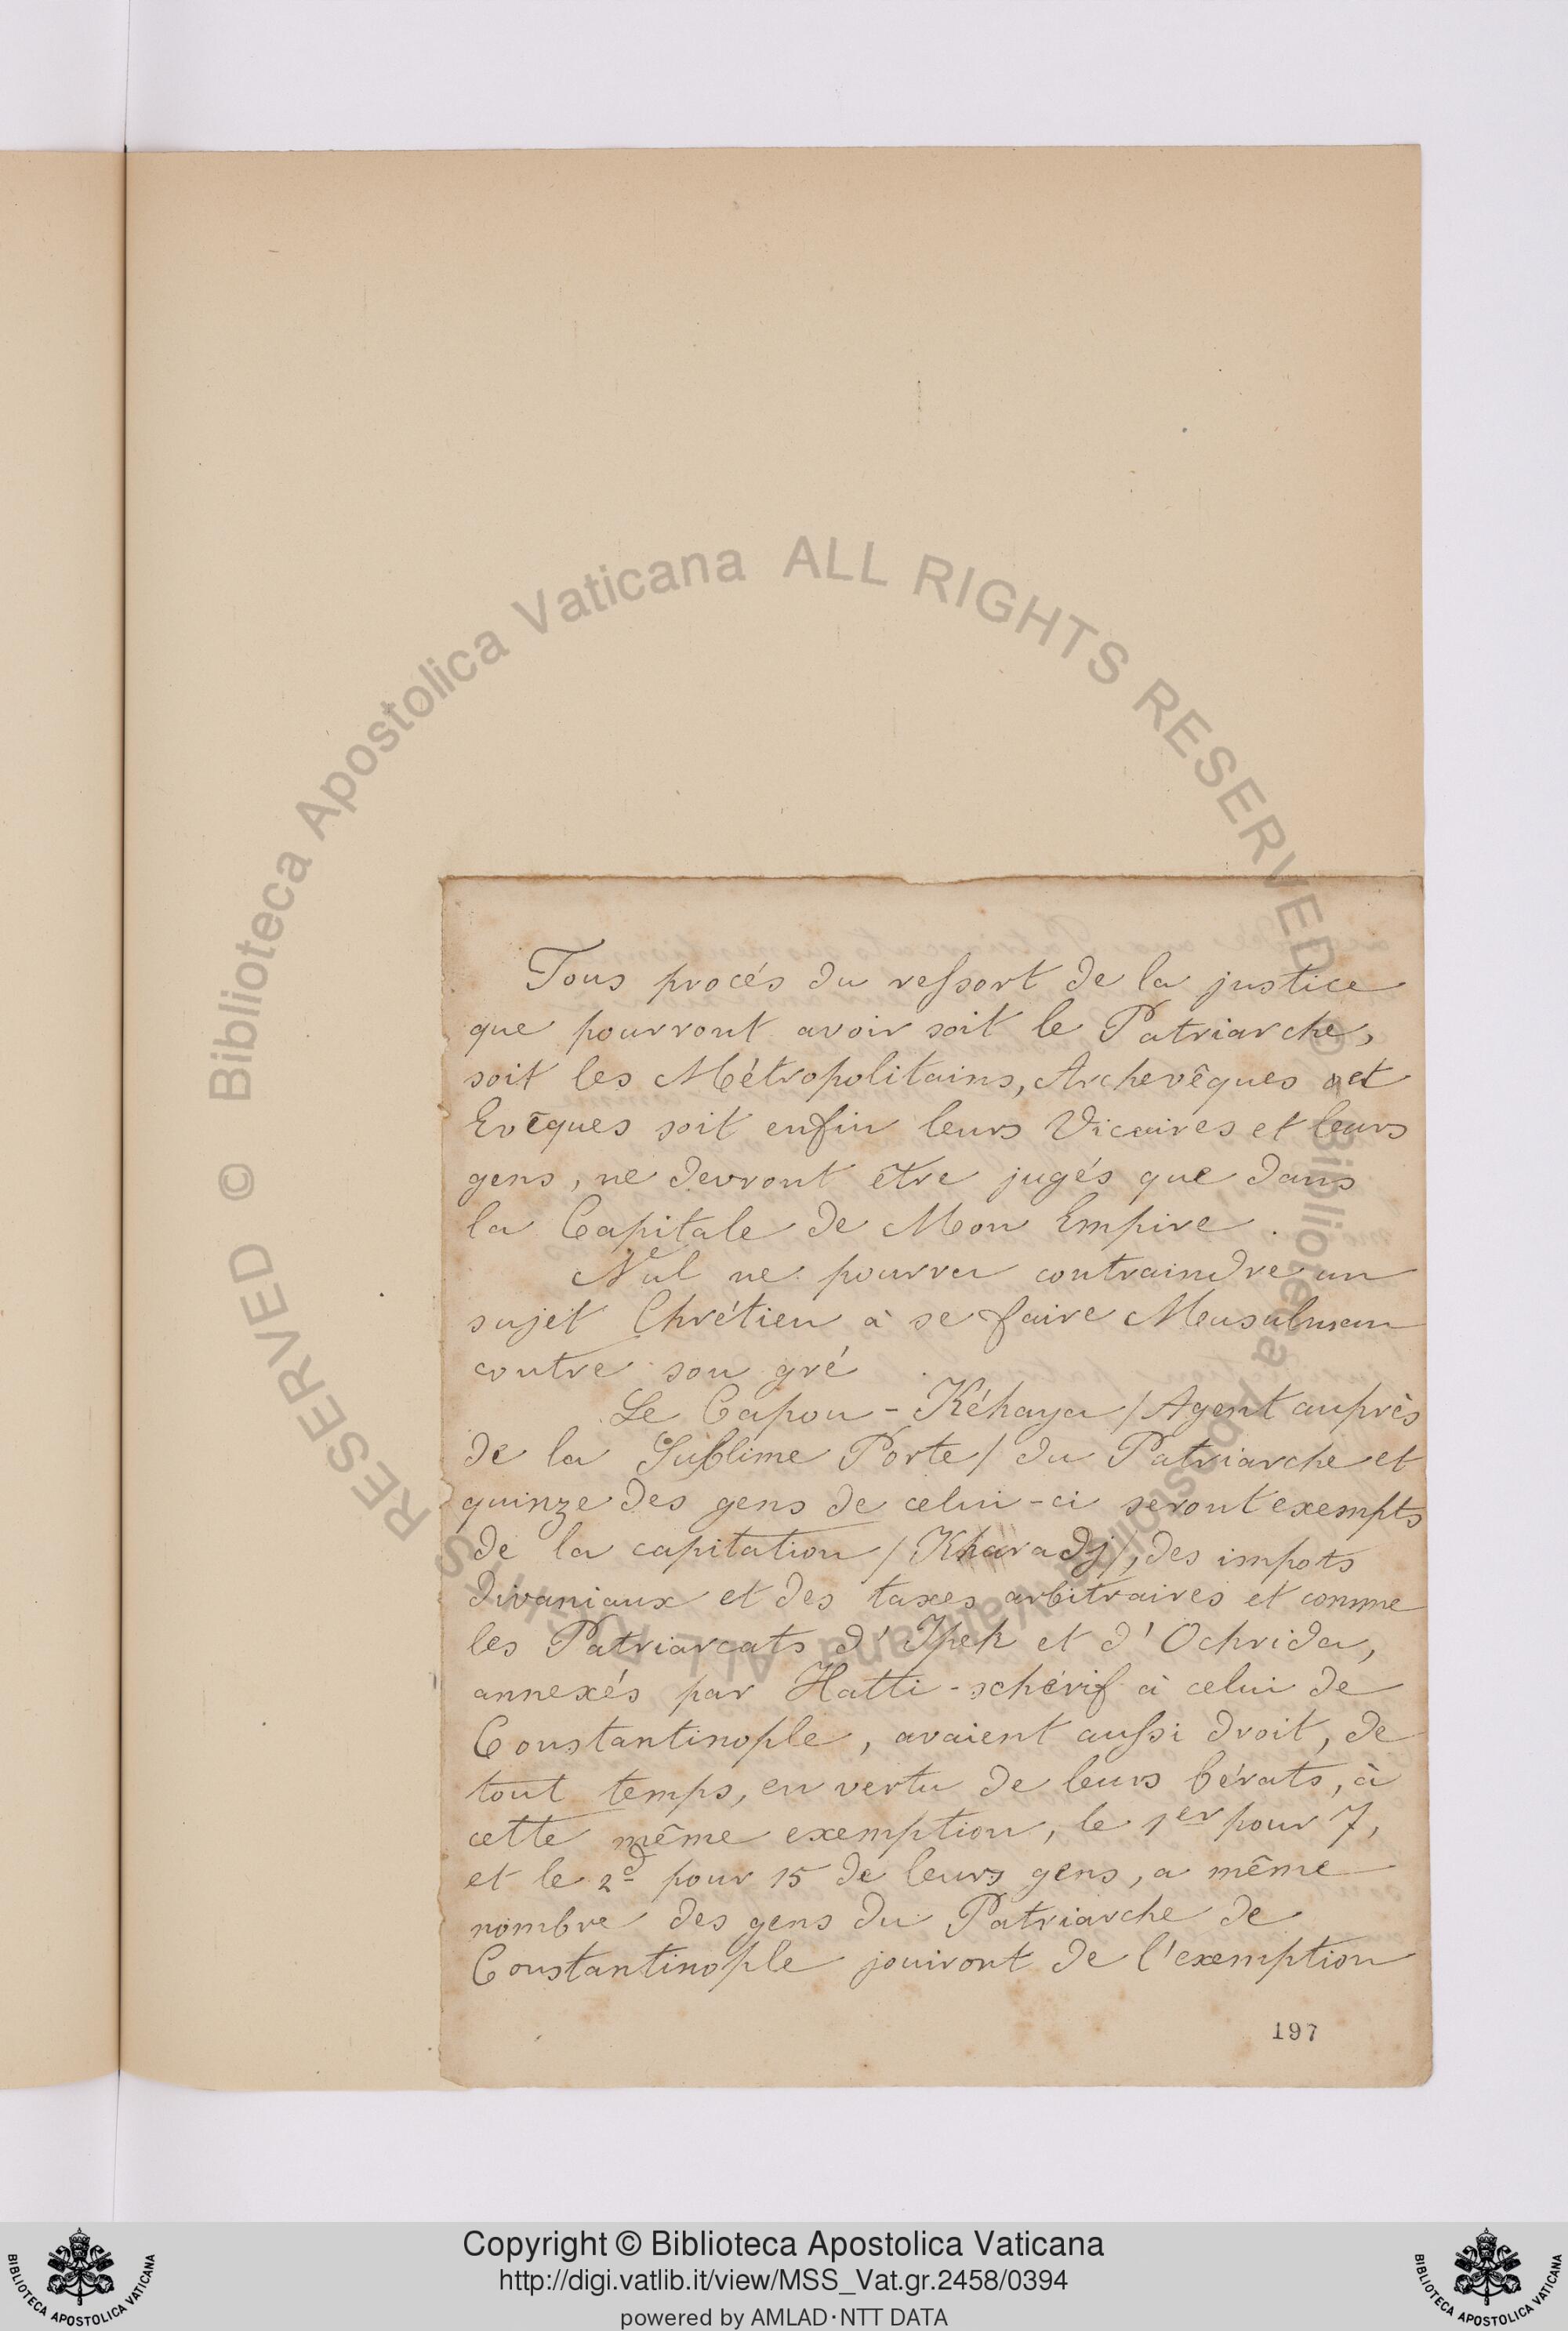 Tous procés du reſsort de la justice
que pourront avoir soit le Patriarche,
soit les Métropolitains, Archevêques et
Evêques soit enfin leurs Vicaires et leurs
gens, ne devront être jugés que dans
la Capitale de Mon Empire.
Nul ne pourra contraindre un
sujet Chrétien à se faire Musulman
contre son gré.
Le Capou-Kéhaya /Agent auprès
de la Sublime Porte/ du Patriarche et
quinze des gens de celui-ci seront exempts
de la capitation /Kharadj/, des impots
divaniaux et des taxes arbitraires et comme
les Patriarcats d'Ipek et d'Ochrida,
annexés par Hatti-schérif à celui de
Constantinople, avaient auſsi droit, de
tout temps, en vertu de leurs bérats, à
cette même exemption, le 1er pour 7,
et le 2d pour 15 de leurs gens, a même
nombre des gens du Patriarche de
Constantinople jouiront de l'exemption
197
Biblioteca Apostolica Vaticana ALL RIGHTS RESERVED ©
Copyright © Biblioteca Apostolica Vaticana
http://digi.vatlib.it/view/MSS_Vat.gr.2458/0394
powered by AMLAD·NTT DATA
BIBLIOTECA APOSTOLICA VATICANA
BIBLIOTECA APOSTOLICA VATICANA